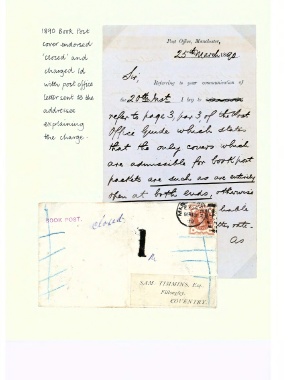 1890 Book Post
cover endorsed
'closed' and
charged 1d
with post office
letter sent to the
addressee
explaining
the charge.
Post Office, Manchester,
25th March 1890
Sir,
Referring to your communication of
the 20th Inst I beg to
refer to page 3, par 3, of the Post
Office Guide which states
that the only covers which
are admissible for book post
packets are such as are entirely
open at both ends, otherwise
liable
rate.
as
BOOK POST.
closed
1
A
SAM TIMMINS, Esq.
Fillongley,
COVENTRY.